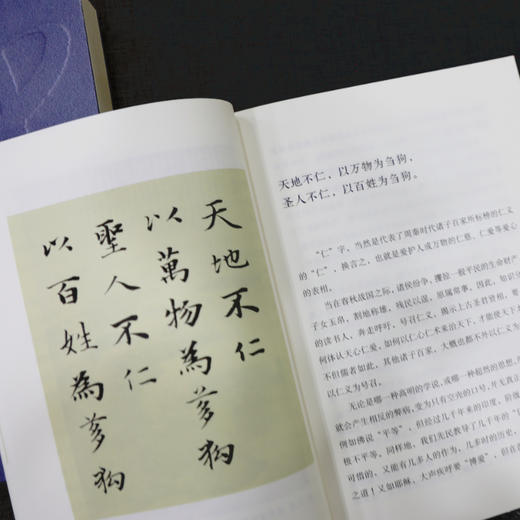 天地不仁
以萬物為芻狗
聖人不仁
以百姓為芻狗
天地不仁，以万物为刍狗，
圣人不仁，以百姓为刍狗。
“仁”字，当然是代表了周秦时代诸子百家所标榜的仁义
的“仁”，换言之，也就是爱护人或万物的仁慈、仁爱等爱心
的表相。
当在春秋战国之际，诸侯纷争，攫掠一般平民的生命财产
子女玉帛，割地称雄，残民以逞，原属常事。因此，知识分
的读书人，奔走呼吁，号召仁义，揭示上古圣君贤相，要
何体认天心仁爱，如何以仁心仁术来治天下，才能使天下
不但儒者如此，其他诸子百家，大概也都不外以仁义为
以仁义为号召。
无论是哪一种高明的学说，或哪一种超然的思想，
就会产生相反的弊病，变为只有空壳的口号，并无真正
例如佛说“平等”，但经过几千年来的印度，阶级
极不平等。同样地，我们先民教导了几千年的“
可惜的，又能有几多人的作为，几多时的历史，
之道！又如耶稣，大声疾呼要“博爱”，但在